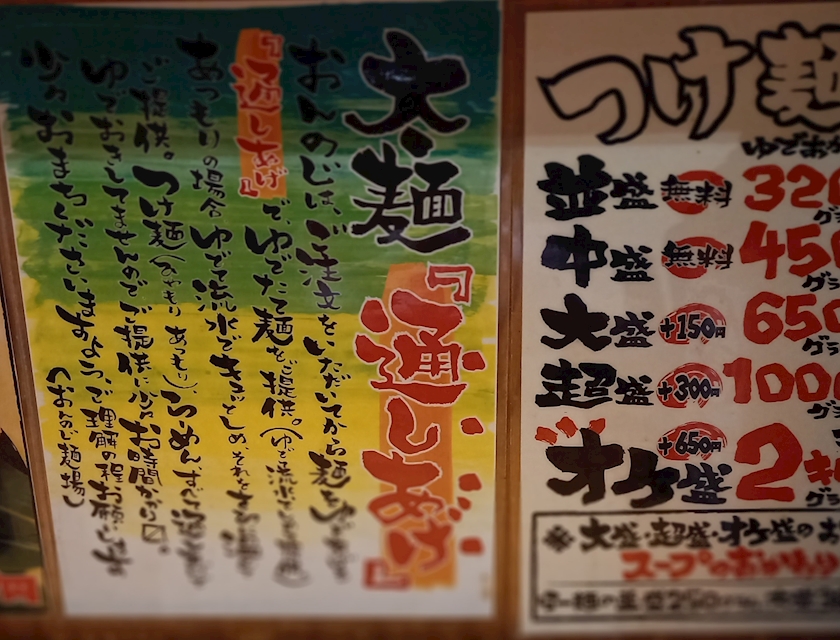 太麺
『通しあげ』
おんのじは、ご注文をいただいてから麺をゆで
『通しあげ』で、ゆでたて麺をご提供。(ゆで
あつもりの場合ゆでて流水でキュッとしめ
ご提供。つけ麺(ひやもり あつもり)、らーめん、すべて
ゆでおきしてませんのでご提供に少々お時間かかり〼。
少々おまちくださいますよう、ご理解の程お願い
(おんのじ麺場)
つけ麺
並盛 無料 320
中盛 無料 450
大盛 +150円 650
超盛 +300円 1000
オケ盛 +650円 2キ
※大盛・超盛・オケ盛の
スープのおかわり